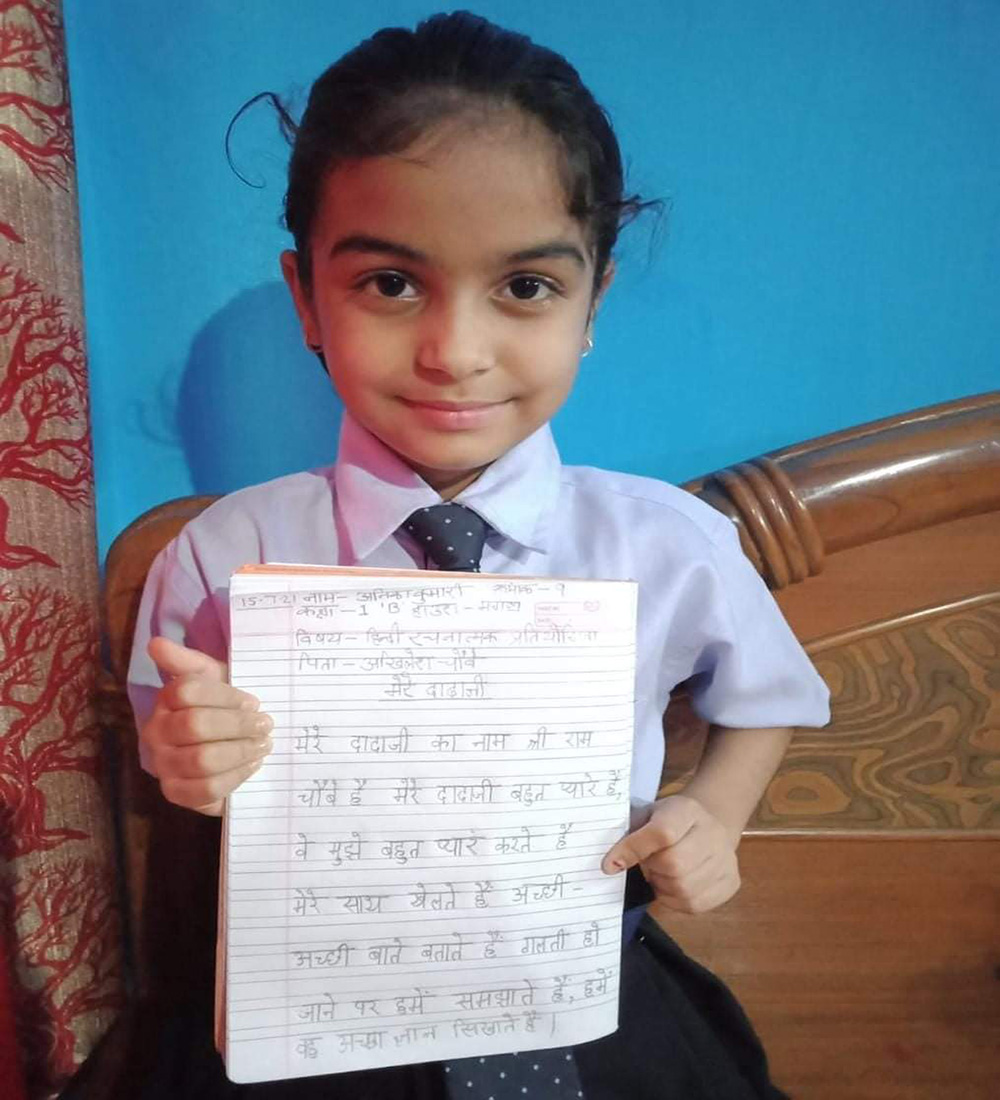 15-7-21 नाम- अनिका कुमारी क्रमांक - 9
कक्षा - 1 'B' हाउस - मगध
विषय - हिन्दी रचनात्मक प्रतियोगिता
पिता - अखिलेश चौबे
मेरे दादाजी
मेरे दादाजी का नाम श्री राम
चौबे है मेरे दादाजी बहुत प्यारे हैं,
वे मुझे बहुत प्यार करते हैं
मेरे साथ खेलते हैं अच्छी -
अच्छी बाते बताते हैं गलती हो
जाने पर हमें समझाते हैं, हमें
वह अच्छा ज्ञान सिखाते हैं।